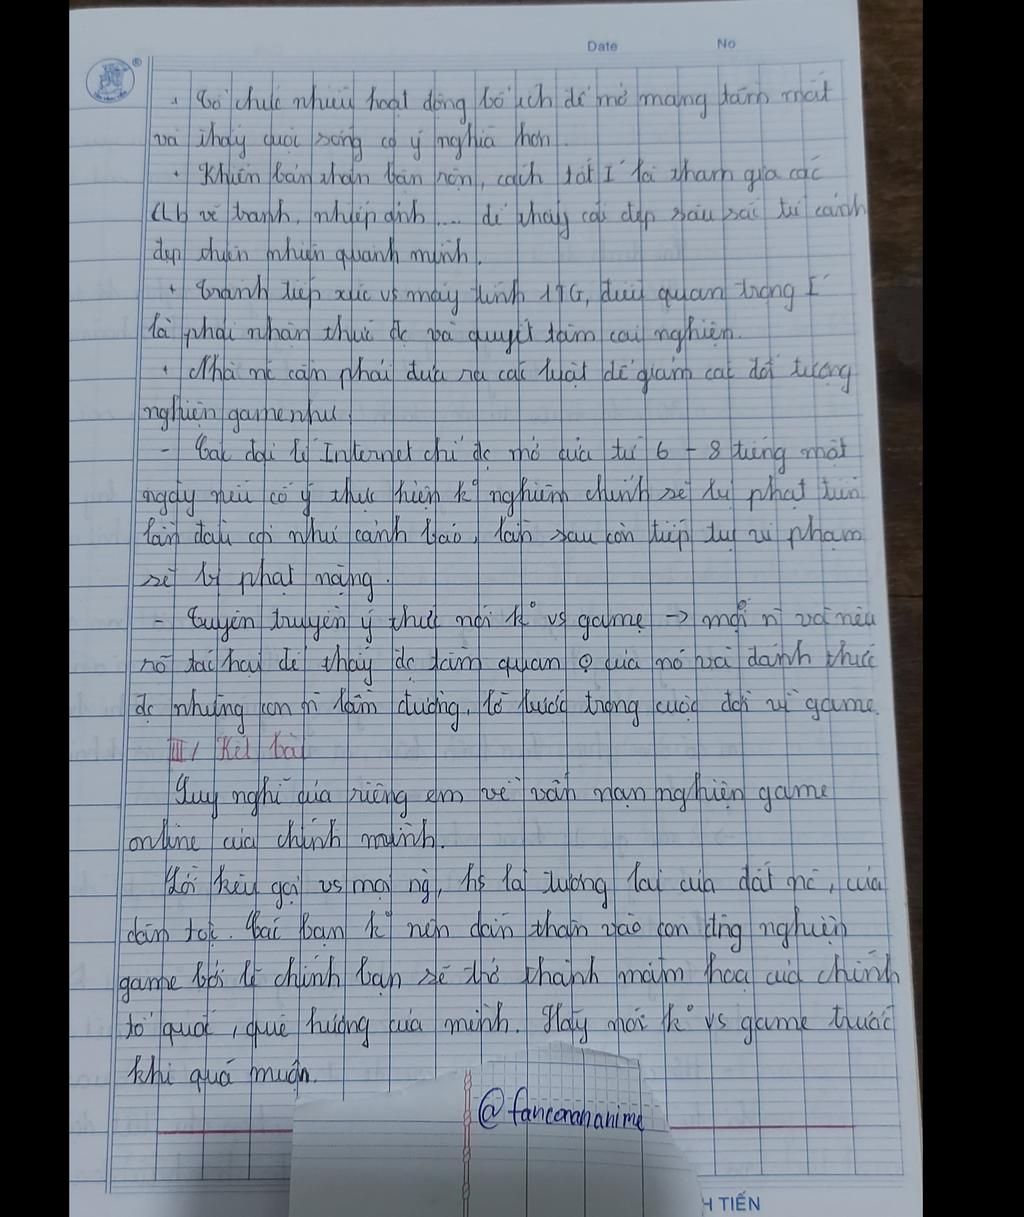 Date No
+ Tổ chức nhiều hoạt động bổ ích để mở mang tầm mắt
và thấy cuộc sống có ý nghĩa hơn.
+ Khiến bản thân bận rộn, cách tốt I là tham gia các
CLb vẽ tranh, nhiếp ảnh .... để thấy cái đẹp sâu sắc từ cảnh
đẹp thiên nhiên quanh mình.
+ Tránh tiếp xúc vs máy tính 1TG, điều quan trọng I
là phải nhận thức đc và quyết tâm cai nghiện.
+ Nhà nc cần phải đưa ra các luật để giảm các đối tượng
nghiện game như
- Các đại lí Internet chỉ đc mở cửa từ 6 - 8 tiếng một
ngày nếu có ý thực hiện k° nghiêm chỉnh sẽ bị phạt tiền
lần đầu coi như cảnh báo, lần sau còn tiếp tục vi phạm
sẽ bị phạt nặng.
- Tuyên truyền ý thức nói k° vs game → mỗi n và nêu
rõ tác hại để thấy đc tầm quan của nó và đánh thức
đc những con n lầm đường, lỡ bước trong cuộc đời vì game.
III/ Kết bài
Suy nghĩ của riêng em về vấn nạn nghiện game
online của chính mình.
Lời kêu gọi vs mọi ng, hs là tương lai của đất nc, của
dân tộc. Các bạn k° nên dấn thân vào con đg nghiện
game bởi lẽ chính bạn sẽ trở thành mầm hoạ của chính
tổ quốc, quê hương của mình. Hãy nói k° vs game trước
khi quá muộn.
@fanconananime
H TIẾN